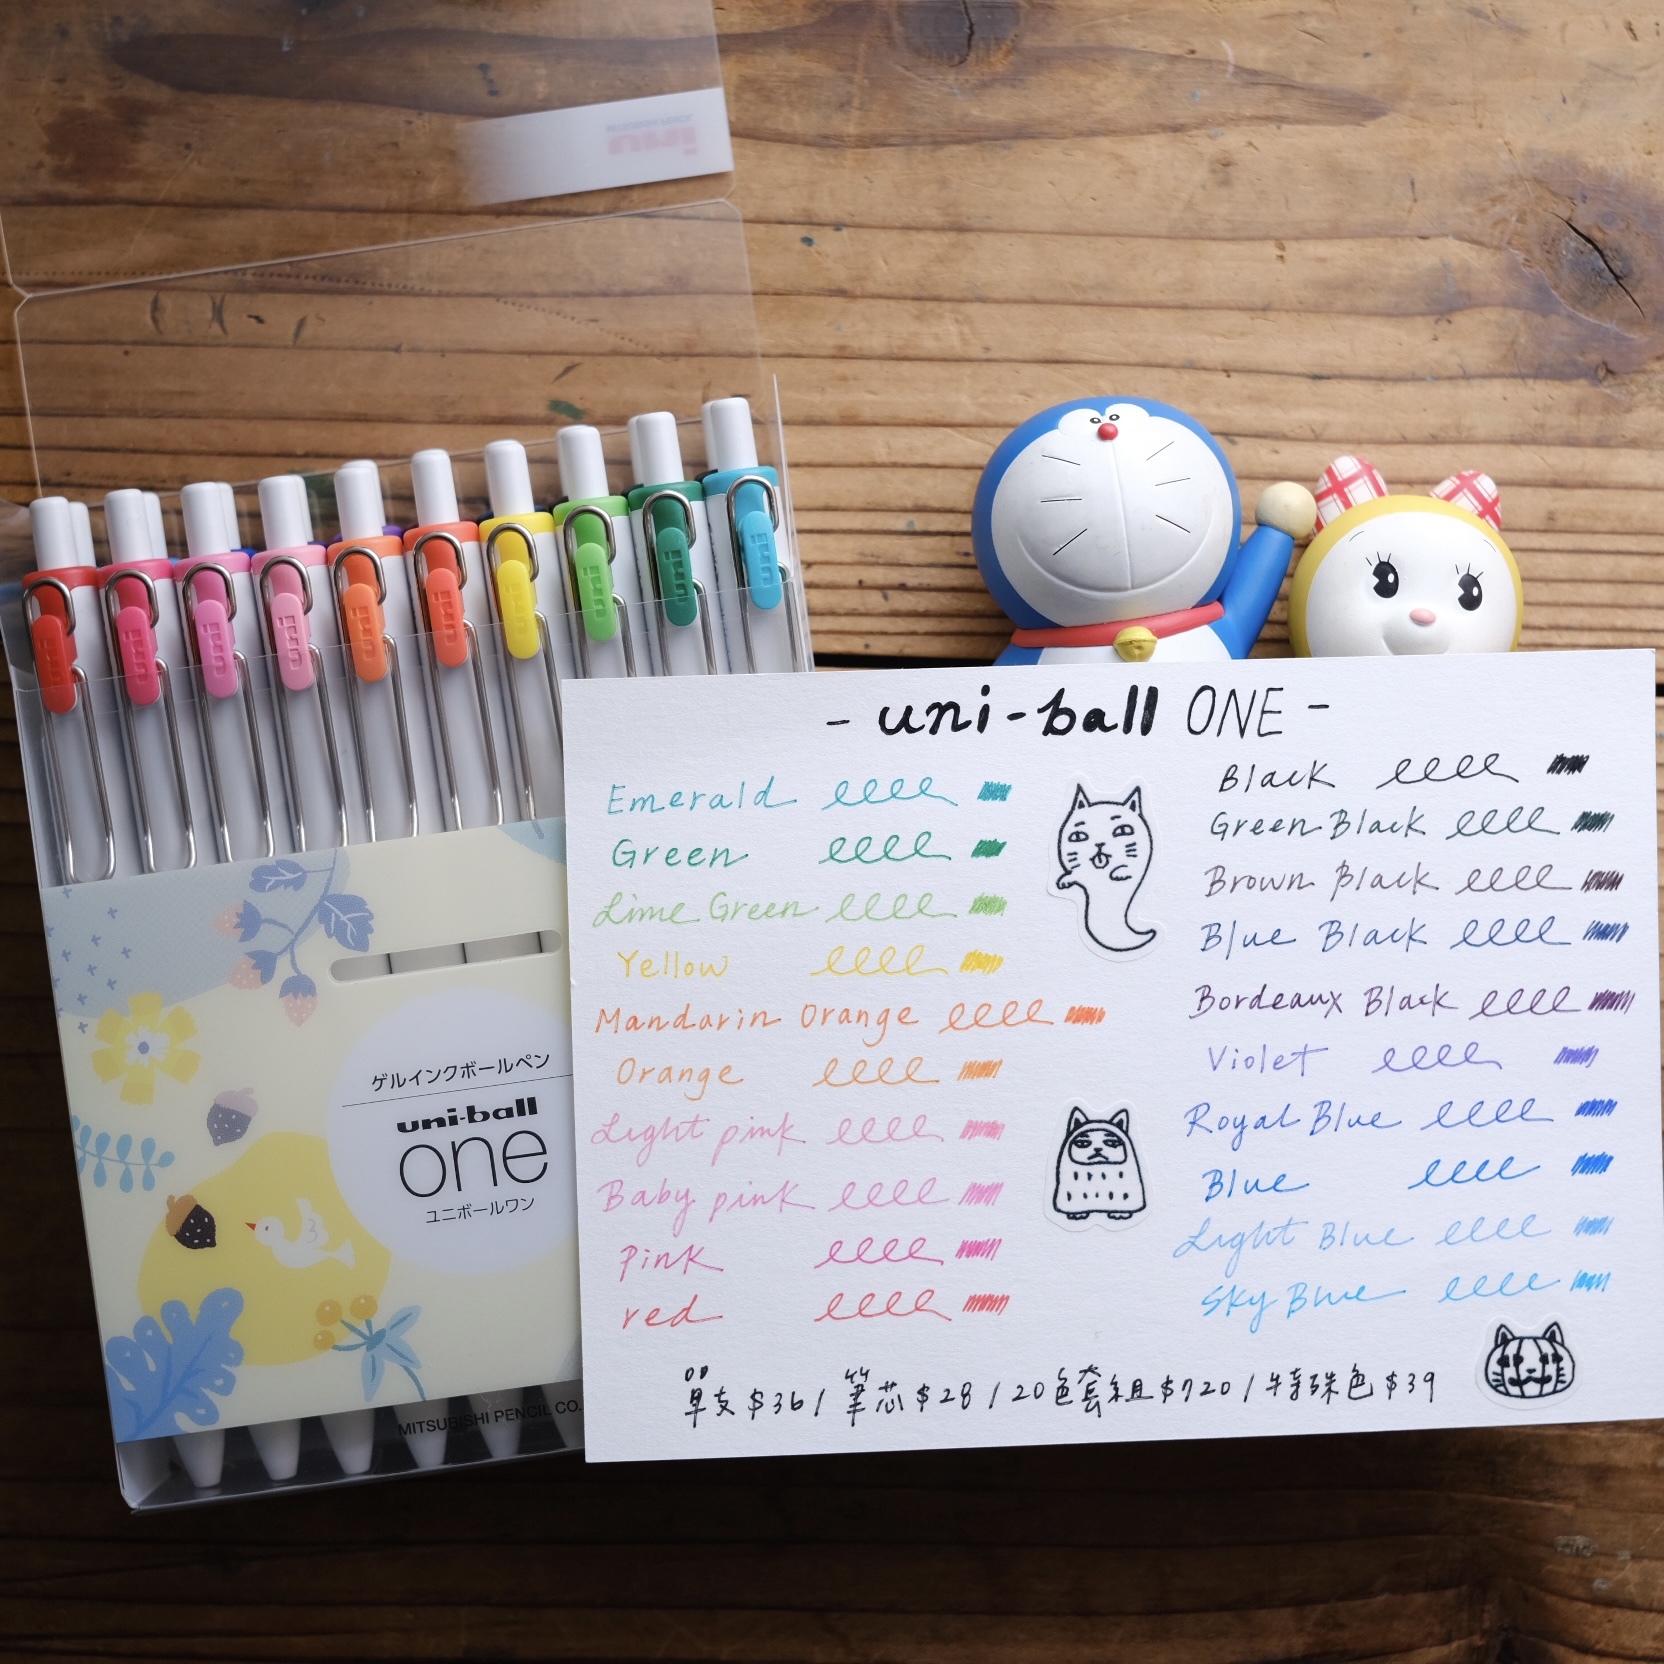 uni
MITSUBISHI PENCIL
uni
uni
uni
uni
uni
uni
uni
uni
uni
uni
ゲルインクボールペン
uni-ball
one
ユニボールワン
MITSUBISHI PENCIL CO.
- uni-ball ONE -
Emerald
Green
Lime Green
Yellow
Mandarin Orange
Orange
Light pink
Baby pink
Pink
red
Black
Green Black
Brown Black
Blue Black
Bordeaux Black
Violet
Royal Blue
Blue
Light Blue
Sky Blue
單支$36/筆芯$28/20色套組$720/特殊色$39